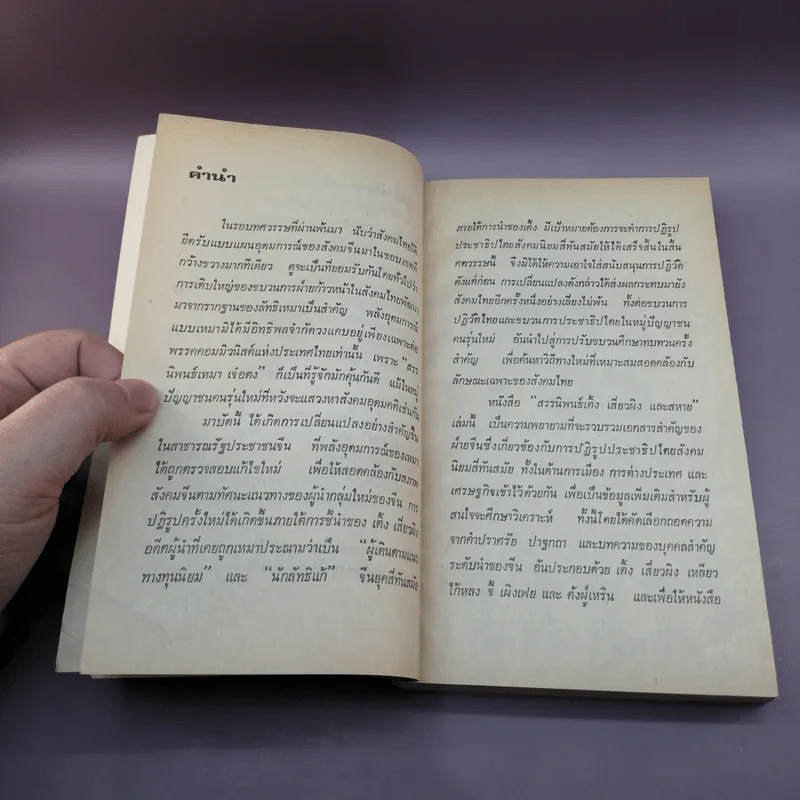 คำนำ
ในรอบทศวรรษที่ผ่านพ้นมา นับว่าสังคมไทยได้
ยึดรับแบบแผนอุดมการณ์ของสังคมจีนมาในขอบเขตที่
กว้างขวางมากทีเดียว ดูจะเป็นที่ยอมรับกันโดยทั่วไปว่า
การเติบใหญ่ของขบวนการฝ่ายก้าวหน้าในสังคมไทยพัฒนา
มาจากรากฐานของลัทธิเหมาเป็นสำคัญ พลังอุดมการณ์
แบบเหมามิได้มีอิทธิพลจำกัดวงแคบอยู่เพียงเฉพาะต่อ
พรรคคอมมิวนิสต์แห่งประเทศไทยเท่านั้น เพราะ “สรร
นิพนธ์เหมา เจ๋อตง” ก็เป็นที่รู้จักมักคุ้นกันดี แม้ในหมู่
ปัญญาชนคนรุ่นใหม่ที่หวังจะแสวงหาสังคมอุดมคติเช่นกัน
มาบัดนี้ ได้เกิดการเปลี่ยนแปลงอย่างสำคัญขึ้น
ในสาธารณรัฐประชาชนจีน ที่พลังอุดมการณ์ของเหมา
ได้ถูกตรวจสอบแก้ไขใหม่ เพื่อให้สอดคล้องกับสภาพ
สังคมจีนตามทัศนะแนวทางของผู้นำกลุ่มใหม่ของจีน การ
ปฏิรูปครั้งใหม่ได้เกิดขึ้นภายใต้การชี้นำของ เติ้ง เสี่ยวผิง
อดีตผู้นำที่เคยถูกเหมาประณามว่าเป็น “ผู้เดินตามแนว
ทางทุนนิยม” และ “นักลัทธิแก้” จีนยุคสี่ทันสมัย
ภายใต้การนำของเติ้ง มีเป้าหมายต้องการจะทำการปฏิรูป
ประชาธิปไตยสังคมนิยมสี่ทันสมัยให้ได้เสร็จสิ้นในสิ้น
ศตวรรษนี้ จึงมิได้ให้ความเอาใจใส่สนับสนุนการปฏิวัติ
ดังแต่ก่อน การเปลี่ยนแปลงดังกล่าวได้ส่งผลกระทบมายัง
สังคมไทยอีกครั้งหนึ่งอย่างเลี่ยงไม่พ้น ทั้งต่อขบวนการ
ปฏิวัติไทยและขบวนการประชาธิปไตยในหมู่ปัญญาชน
คนรุ่นใหม่ อันนำไปสู่การปรับขบวนศึกษาทบทวนครั้ง
สำคัญ เพื่อค้นหาวิถีทางใหม่ที่เหมาะสมสอดคล้องกับ
ลักษณะเฉพาะของสังคมไทย
หนังสือ “สรรนิพนธ์เติ้ง เสี่ยวผิง และสหาย”
เล่มนี้ เป็นความพยายามที่จะรวบรวมเอกสารสำคัญของ
ฝ่ายจีนซึ่งเกี่ยวข้องกับการปฏิรูปประชาธิปไตยสังคม
นิยมสี่ทันสมัย ทั้งในด้านการเมือง การต่างประเทศ และ
เศรษฐกิจเข้าไว้ด้วยกัน เพื่อเป็นข้อมูลเพิ่มเติมสำหรับผู้
สนใจจะศึกษาวิเคราะห์ ทั้งนี้โดยได้คัดเลือกถอดความ
จากคำปราศรัย ปาฐกถา และบทความของบุคคลสำคัญ
ระดับนำของจีน อันประกอบด้วย เติ้ง เสี่ยวผิง เหลียว
ไก้หลง จี้ เผิงเฟย และ ตังผู่เหริน และเพื่อให้หนังสือ